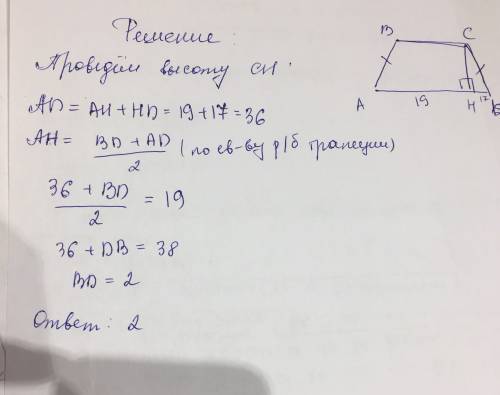 Решение:
Проведём высоту CH.
AD = AH + HD = 19 + 17 = 36
AH = \frac{BD + AD}{2} (по св-ву р/б трапеции)
\frac{36 + BD}{2} = 19
36 + DB = 38
BD = 2
Ответ: 2
B C
A 19 H 17